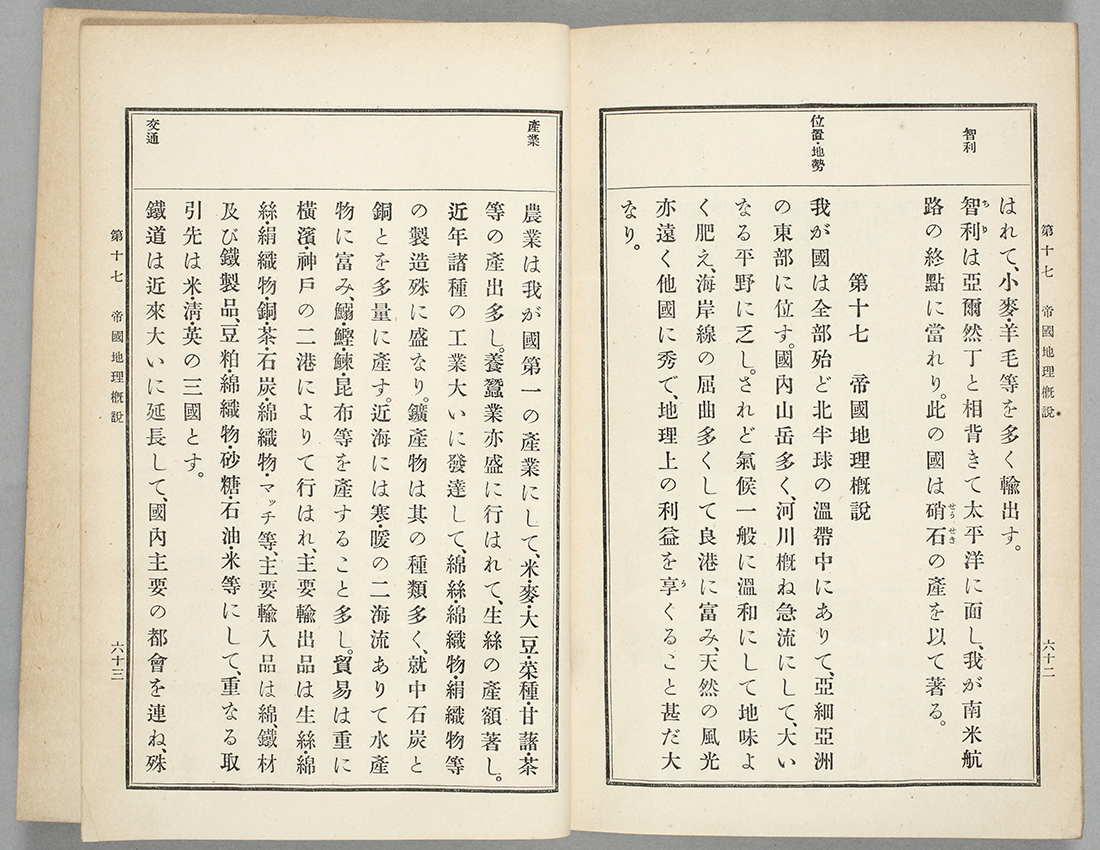 智利
位置・地勢
はれて、小麥・羊毛等を多く輸出す。
智利は亞爾然丁と相背きて太平洋に面し、我が南米航
路の終點に當れり。此の國は硝石の產を以て著る。
第十七　帝國地理槪說
我が國は全部殆ど北半球の溫帶中にありて、亞細亞洲
の東部に位す。國內山岳多く、河川槪ね急流にして、大い
なる平野に乏し。されど氣候一般に溫和にして地味よ
く肥え、海岸線の屈曲多くして良港に富み、天然の風光
亦遠く他國に秀で、地理上の利益を享くること甚だ大
なり。
第十七　帝國地理槪說
六十二
產業
交通
農業は我が國第一の產業にして、米・麥・大豆・菜種・甘藷・茶
等の產出多し。養蠶業亦盛に行はれて、生絲の產額著し。
近年諸種の工業大いに發達して、綿絲・綿織物・絹織物等
の製造殊に盛なり。鑛產物は其の種類多く、就中石炭と
銅とを多量に產す。近海には寒・暖の二海流ありて水產
物に富み、鰯・鰹・鰊・昆布等を產すること多し。貿易は重に
橫濱・神戶の二港によりて行はれ、主要輸出品は生絲・綿
絲・絹織物・銅・茶・石炭・綿織物・マッチ等、主要輸入品は綿、鐵材
及び鐵製品、豆粕・綿織物・砂糖・石油・米等にして、重なる取
引先は米・淸・英の三國とす。
鐵道は近來大いに延長して、國內主要の都會を連ね、殊
第十七　帝國地理槪說
六十三